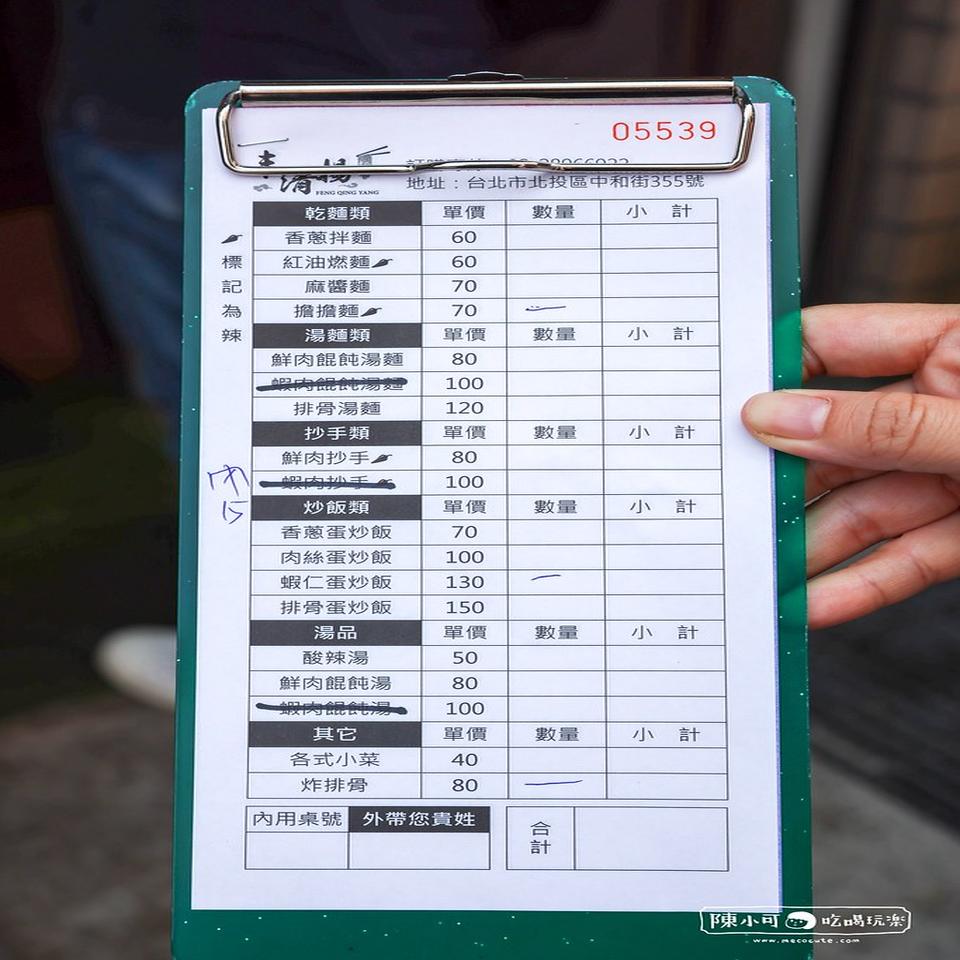 05539
清揚
FENG QING YANG
地址：台北市北投區中和街355號
乾麵類 單價 數量 小 計
香蔥拌麵 60
紅油燃麵 60
麻醬麵 70
擔擔麵 70 一
標記為辣
湯麵類 單價 數量 小 計
鮮肉餛飩湯麵 80
蝦肉餛飩湯麵 100
排骨湯麵 120
抄手類 單價 數量 小 計
鮮肉抄手 80
蝦肉抄手 100
內
炒飯類 單價 數量 小 計
香蔥蛋炒飯 70
肉絲蛋炒飯 100
蝦仁蛋炒飯 130 一
排骨蛋炒飯 150
湯品 單價 數量 小 計
酸辣湯 50
鮮肉餛飩湯 80
蝦肉餛飩湯 100
其它 單價 數量 小 計
各式小菜 40
炸排骨 80 一
內用桌號 外帶您貴姓 合計
陳小可 吃喝玩樂
www.mecocute.com